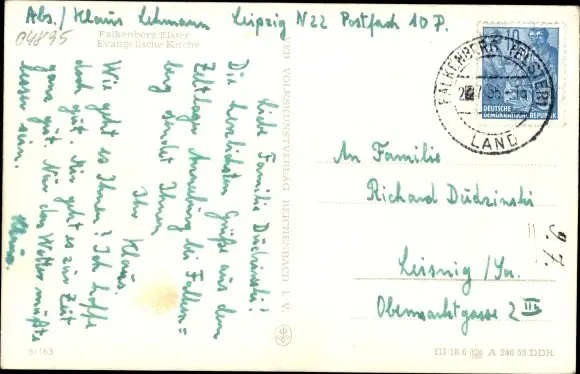 Abs./ Klaus Lehmann Leipzig N22 Postfach 10 P.
04895
Falkenberg/Elster
Evangelische Kirche
Liebe Familie Dudzinski!
Die herzlichsten Grüße aus dem
Zeltlager Annaburg bei Falken=
berg sendet Ihnen
Ihr Klaus.
Wie geht es Ihnen? Ich hoffe
doch gut. Mir geht es zur Zeit
ganz gut. Nur das Wetter müßte
besser sein.
Klaus.
VEB VOLKSKUNSTVERLAG REICHENBACH I. V.
10
DEUTSCHE
DEMOKRATISCHE REPUBLIK
FALKENBERG (ELSTER)
LAND
An Familie
Richard Dudzinski
Leisnig /Sa.
Obermarktgasse 2 III
9.7.
6/163
III 18 6 A 246 55 DDR